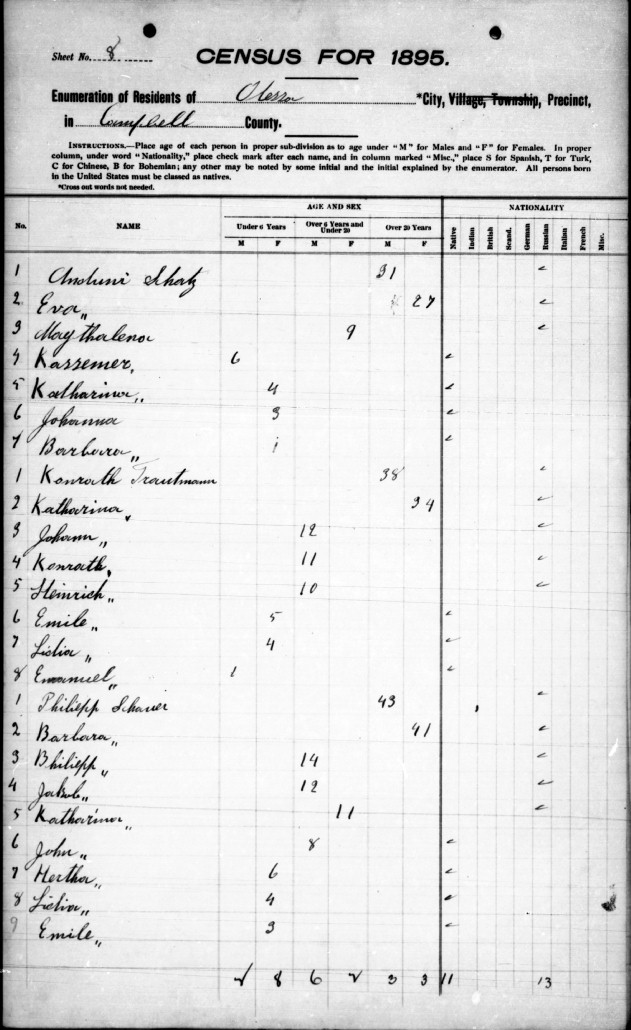 Sheet No. 8
CENSUS FOR 1895.
Enumeration of Residents of Odessa *City, Village, Township, Precinct,
in Campbell County.
INSTRUCTIONS.—Place age of each person in proper sub-division as to age under "M" for Males and "F" for Females. In proper
column, under word "Nationality," place check mark after each name, and in column marked "Misc.," place S for Spanish, T for Turk,
C for Chinese, B for Bohemian; any other may be noted by some initial and the initial explained by the enumerator. All persons born
in the United States must be classed as natives.
*Cross out words not needed.
AGE AND SEX NATIONALITY
No. NAME Under 6 Years Over 6 Years and Under 20 Over 20 Years Native Indian British Scand. German Russian Italian French Misc.
M F M F M F
1 Shatz 31 ✓
2 Eva " 27 ✓
3 Magthalena 9 ✓
4 Kassemer, 6 ✓
5 Katharina " 4 ✓
6 Johanna 3 ✓
7 Barbara " 1 ✓
1 Konrath Trautmann 38 ✓
2 Katharina " 34 ✓
3 Johann " 12 ✓
4 Konrath " 11 ✓
5 Heinrich " 10 ✓
6 Emile " 5 ✓
7 Lidia " 4 ✓
8 Emanuel " 1 ✓
1 Philiepp Schauer 43 ✓
2 Barbara " 41 ✓
3 Philiepp " 14 ✓
4 Jakob " 12 ✓
5 Katharina " 11 ✓
6 John " 8 ✓
7 Hertha " 6 ✓
8 Lidia " 4 ✓
9 Emile " 3 ✓
2 8 6 2 3 3 11 13